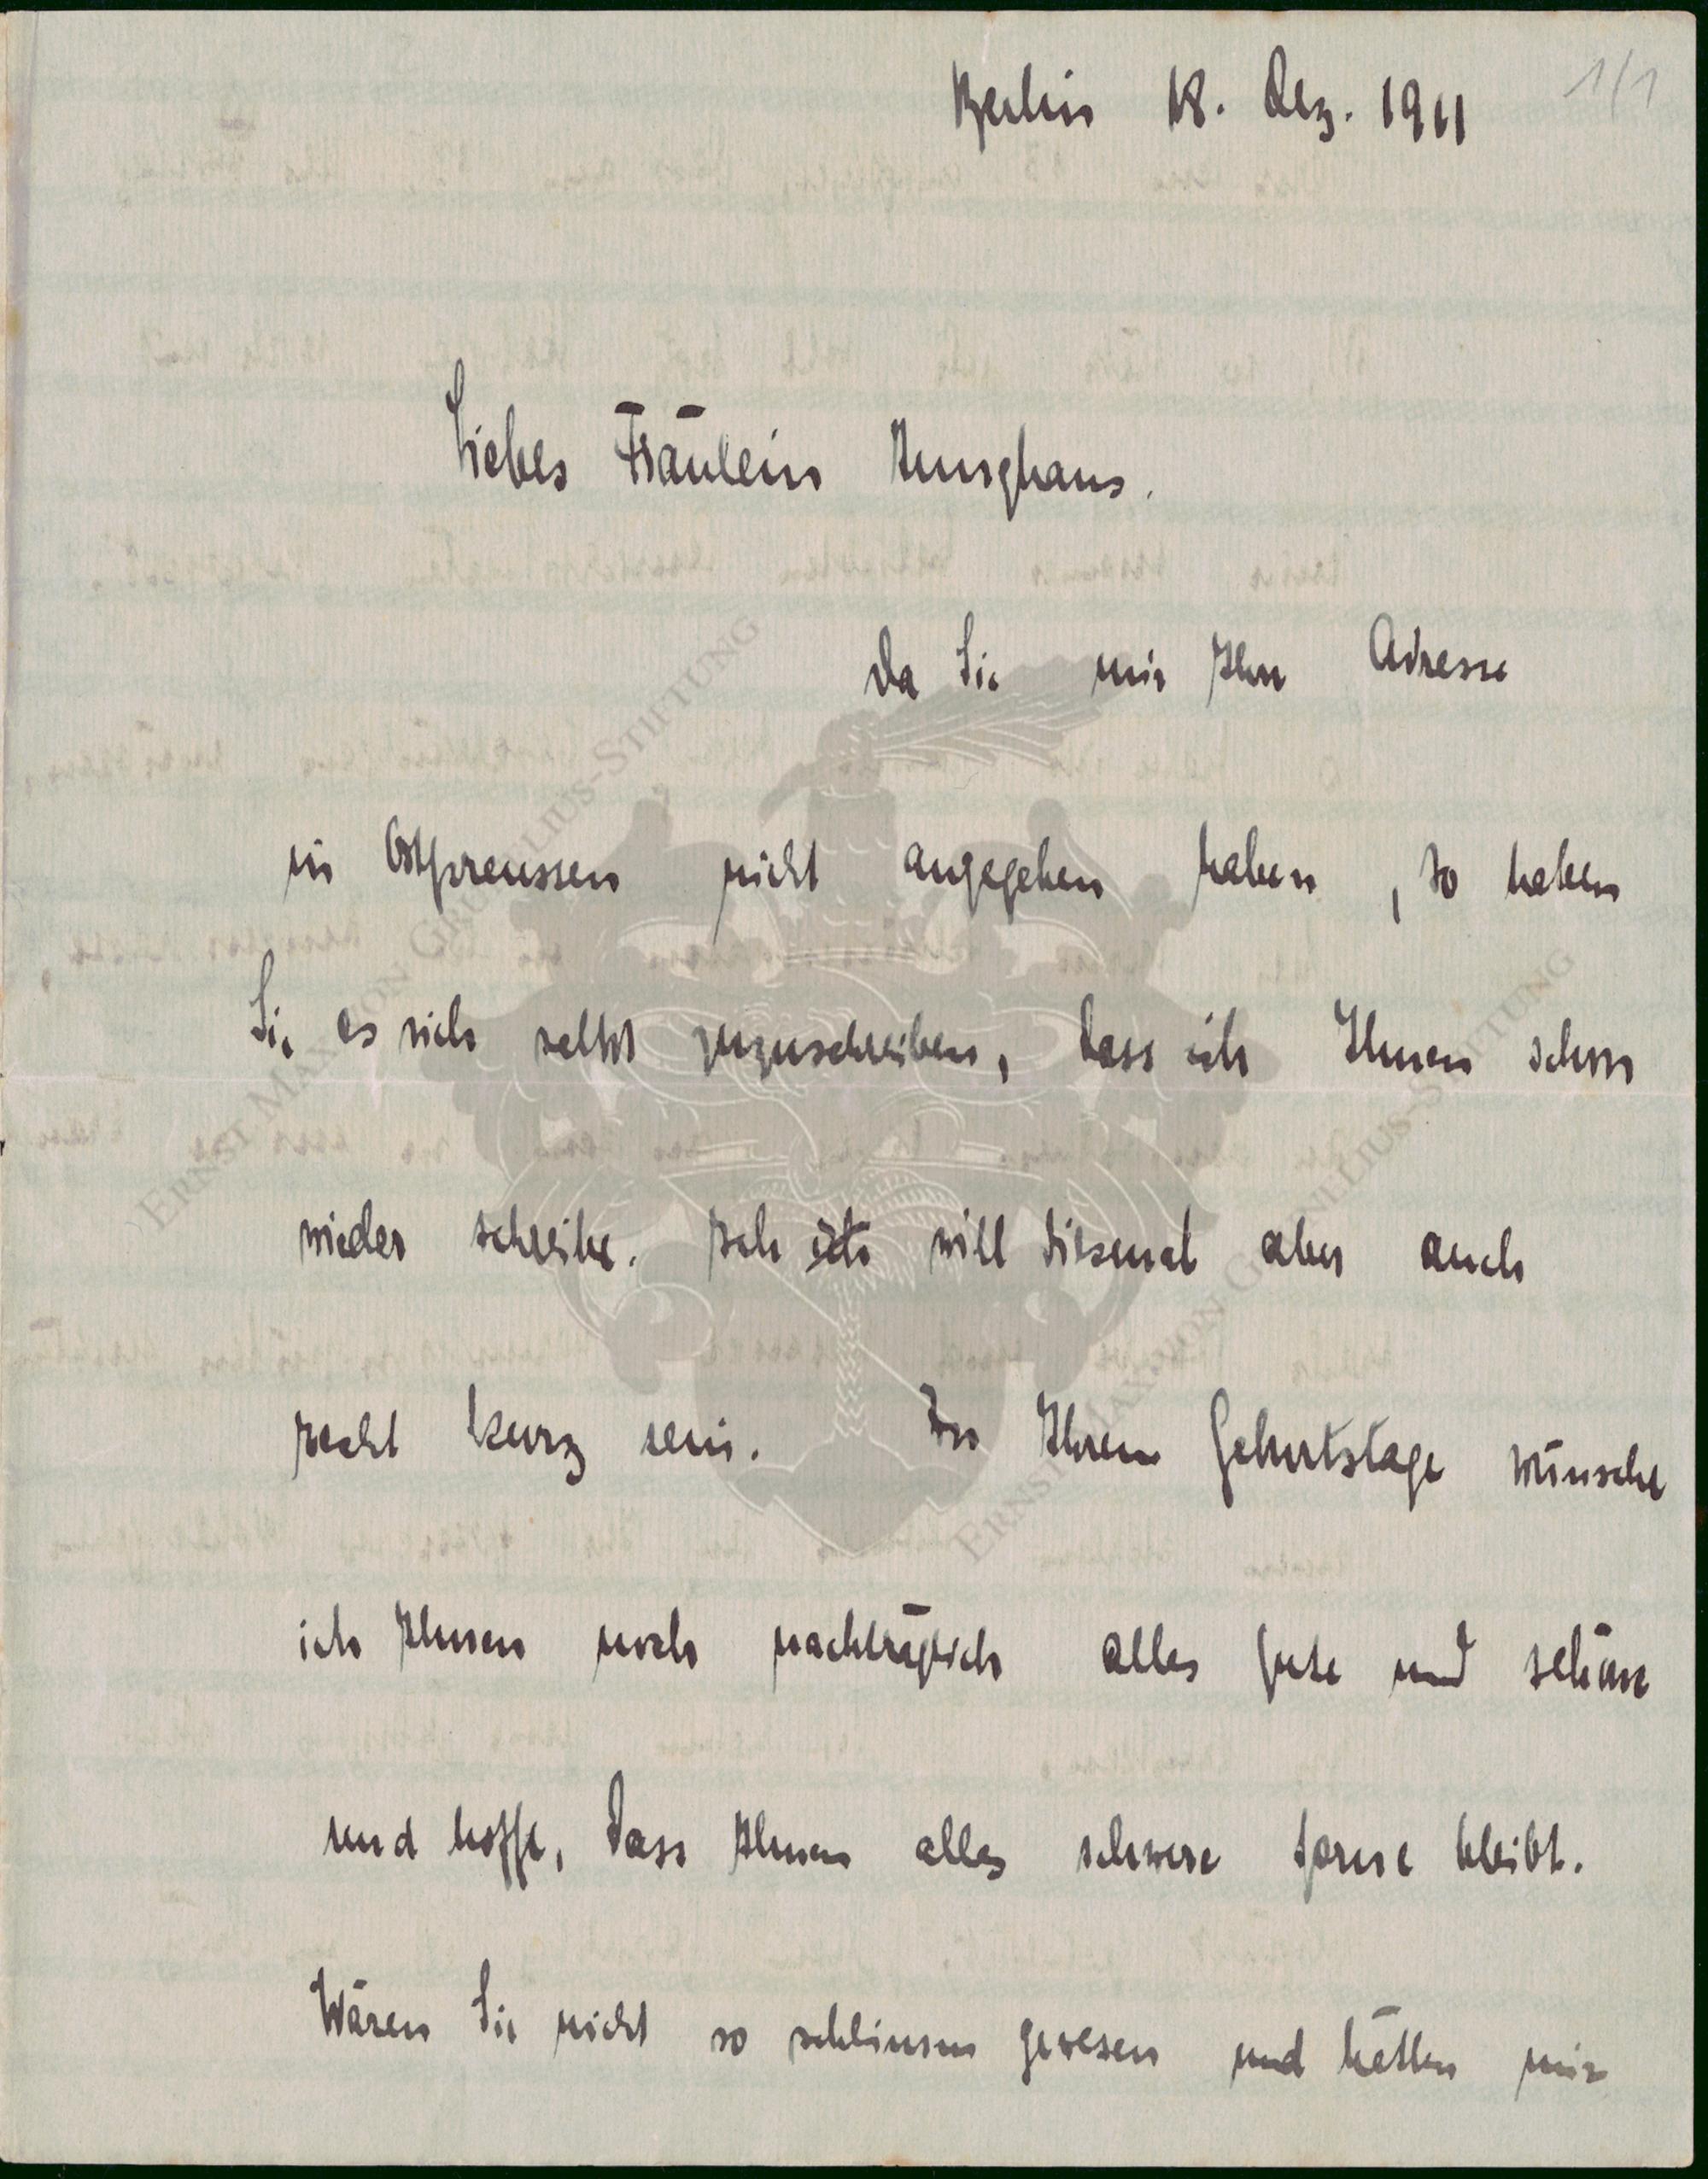 Berlin 18. Dez. 1911
1/1
Liebes Fräulein Junghans.
Da Sie mir Ihre Adresse
in Ostpreussen nicht angegeben haben, so haben
Sie es sich selbst zuzuschreiben, dass ich Ihnen schon
wieder schreibe. Ich ich will diesmal aber auch
recht kurz sein. Zu Ihrem Geburtstage wünsche
ich Ihnen noch nachträglich alles Gute und schöne
und hoffe, dass Ihnen alles schwere ferne bleibt.
Wären Sie nicht so schlimm gewesen und hätten mir
ERNST MAXION GRUNELIUS-STIFTUNG
ERNST MAXION GRUNELIUS-STIFTUNG